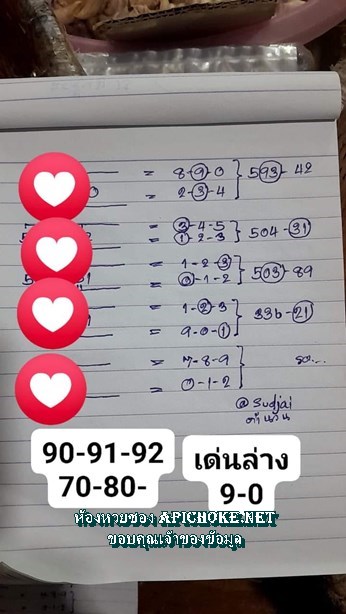 = 8-9-0
593-42
= 2-3-4
= 3-4-5
504-31
= 1-2-3
= 1-2-3
503-89
= 0-1-2
= 1-2-3
336-21
= 9-0-1
= 7-8-9
รอ...
= 0-1-2
@Sudjai
คำนวน
90-91-92
70-80-
เด่นล่าง
9-0
ห้องหวยซอง APICHOKE.NET
ขอบคุณเจ้าของข้อมูล